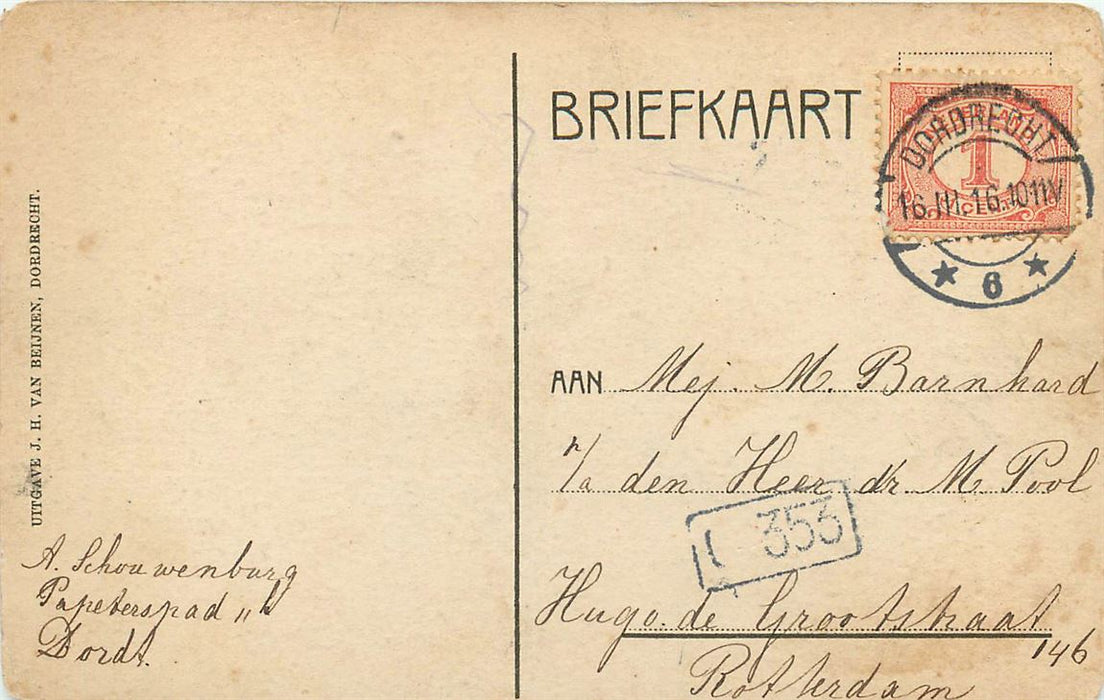 BRIEFKAART
DORDRECHT
16.III.16.10-11V
6
1
UITGAVE J. H. VAN BEIJNEN, DORDRECHT.
A. Schouwenburg
Dordt.
AAN Mej. M. Barnhard
p/a den Heer dr M Pool
353
Hugo de Grootstraat
146
Rotterdam